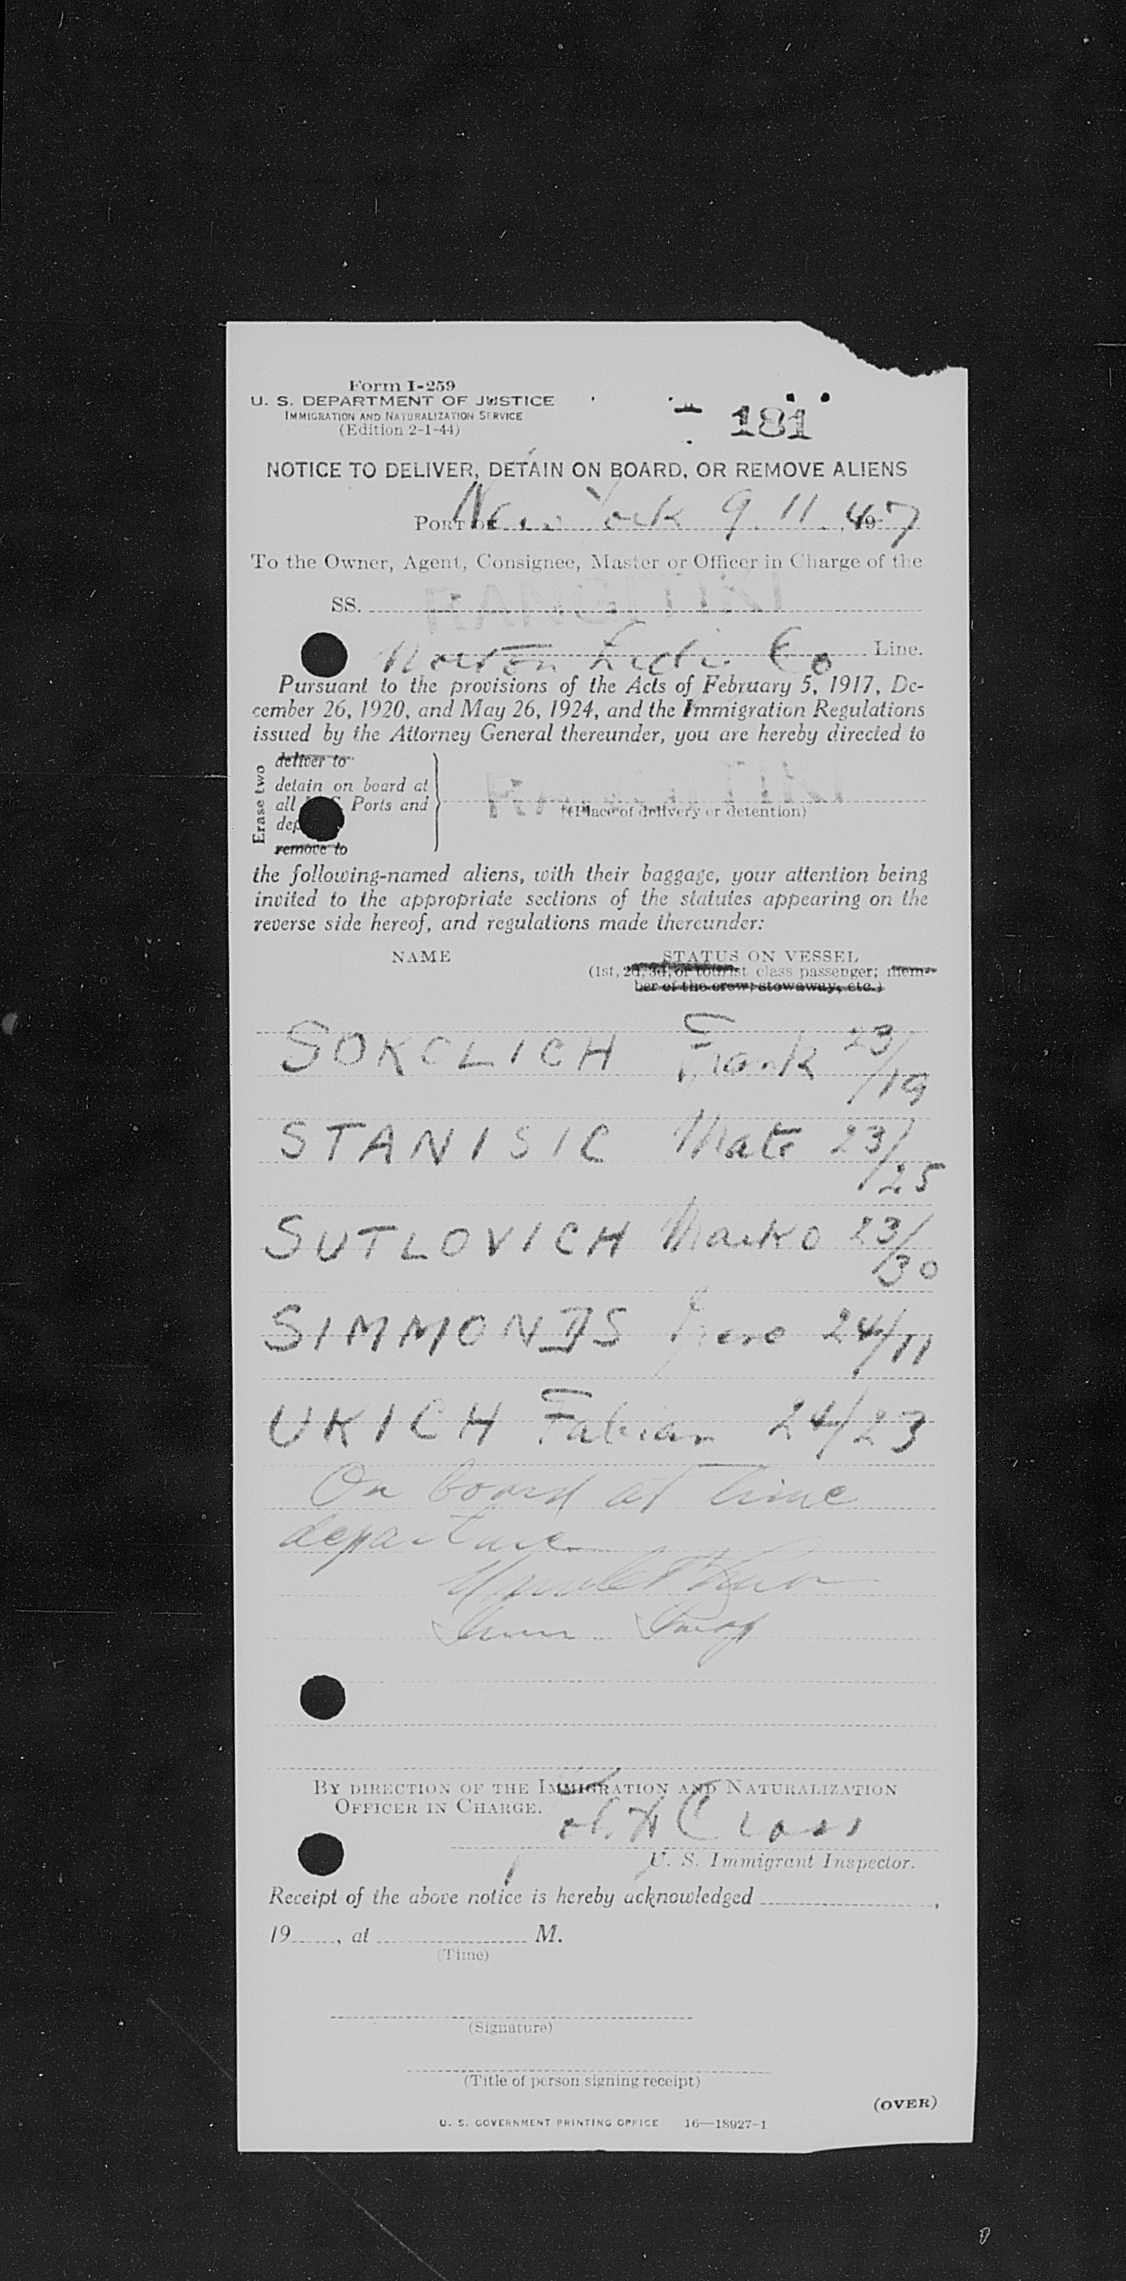 Form I-259
U. S. DEPARTMENT OF JUSTICE
IMMIGRATION AND NATURALIZATION SERVICE
(Edition 2-1-44)
181
NOTICE TO DELIVER, DETAIN ON BOARD, OR REMOVE ALIENS
PORT OF New York 9.11.47
To the Owner, Agent, Consignee, Master or Officer in Charge of the
SS. RANGITIKI
Norton Co Line.
Pursuant to the provisions of the Acts of February 5, 1917, De-
cember 26, 1920, and May 26, 1924, and the Immigration Regulations
issued by the Attorney General thereunder, you are hereby directed to
Erase two
deliver to
detain on board at
all Ports and
dep
remove to
RANGITIKI
(Place of delivery or detention)
the following-named aliens, with their baggage, your attention being
invited to the appropriate sections of the statutes appearing on the
reverse side hereof, and regulations made thereunder:
NAME STATUS ON VESSEL
(1st, 2d, 3d, or tourist class passenger; mem-
ber of the crew; stowaway, etc.)
SOKCLICH Frank 23/19
STANISIC Mate 23/25
SUTLOVICH Marko 23/30
SIMMONDS 24/11
UKICH Fabian 24/23
On board at time
departure
BY DIRECTION OF THE IMMIGRATION AND NATURALIZATION
OFFICER IN CHARGE.
Cross
U. S. Immigrant Inspector.
Receipt of the above notice is hereby acknowledged ,
19 , at M.
(Time)
(Signature)
(Title of person signing receipt)
(OVER)
U. S. GOVERNMENT PRINTING OFFICE 16—18927-1